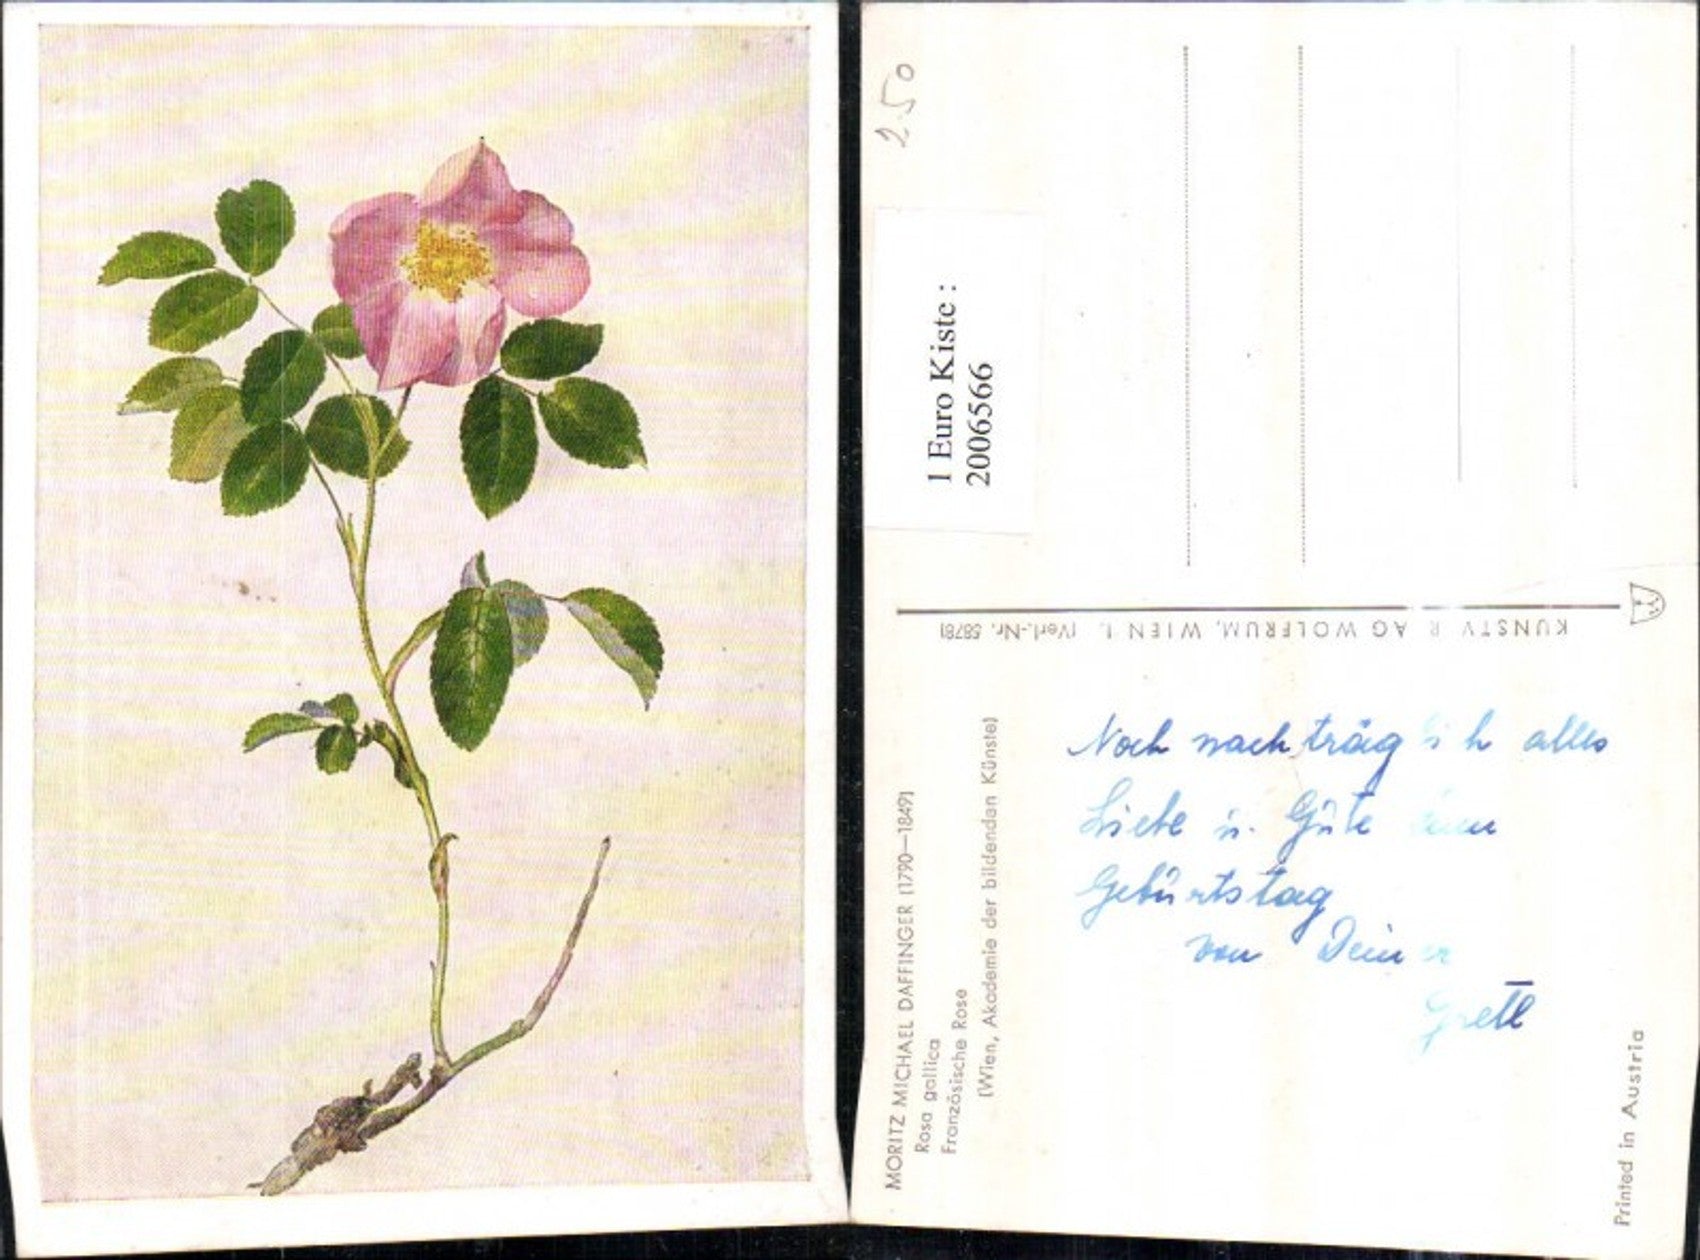 2.50
1 Euro Kiste :
2006566
KUNSTV R AG WOLFRUM, WIEN I. (Verl.-Nr. 5878)
MORITZ MICHAEL DAFFINGER (1790—1849)
Rosa gallica
Französische Rose
(Wien, Akademie der bildenden Künste)
Noch nachträglich alles
Liebe u. Gute
Geburtstag
von Deiner
Gretl
Printed in Austria